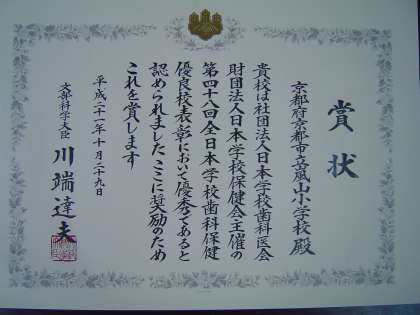 賞状
京都府京都市立嵐山小学校殿
貴校は社団法人日本学校歯科医会
財団法人日本学校保健会主催の
第四十八回全日本学校歯科保健
優良校表彰において優秀であると
認められましたここに奨励のため
これを賞します
平成二十一年十月二十九日
文部科学大臣 川端達夫